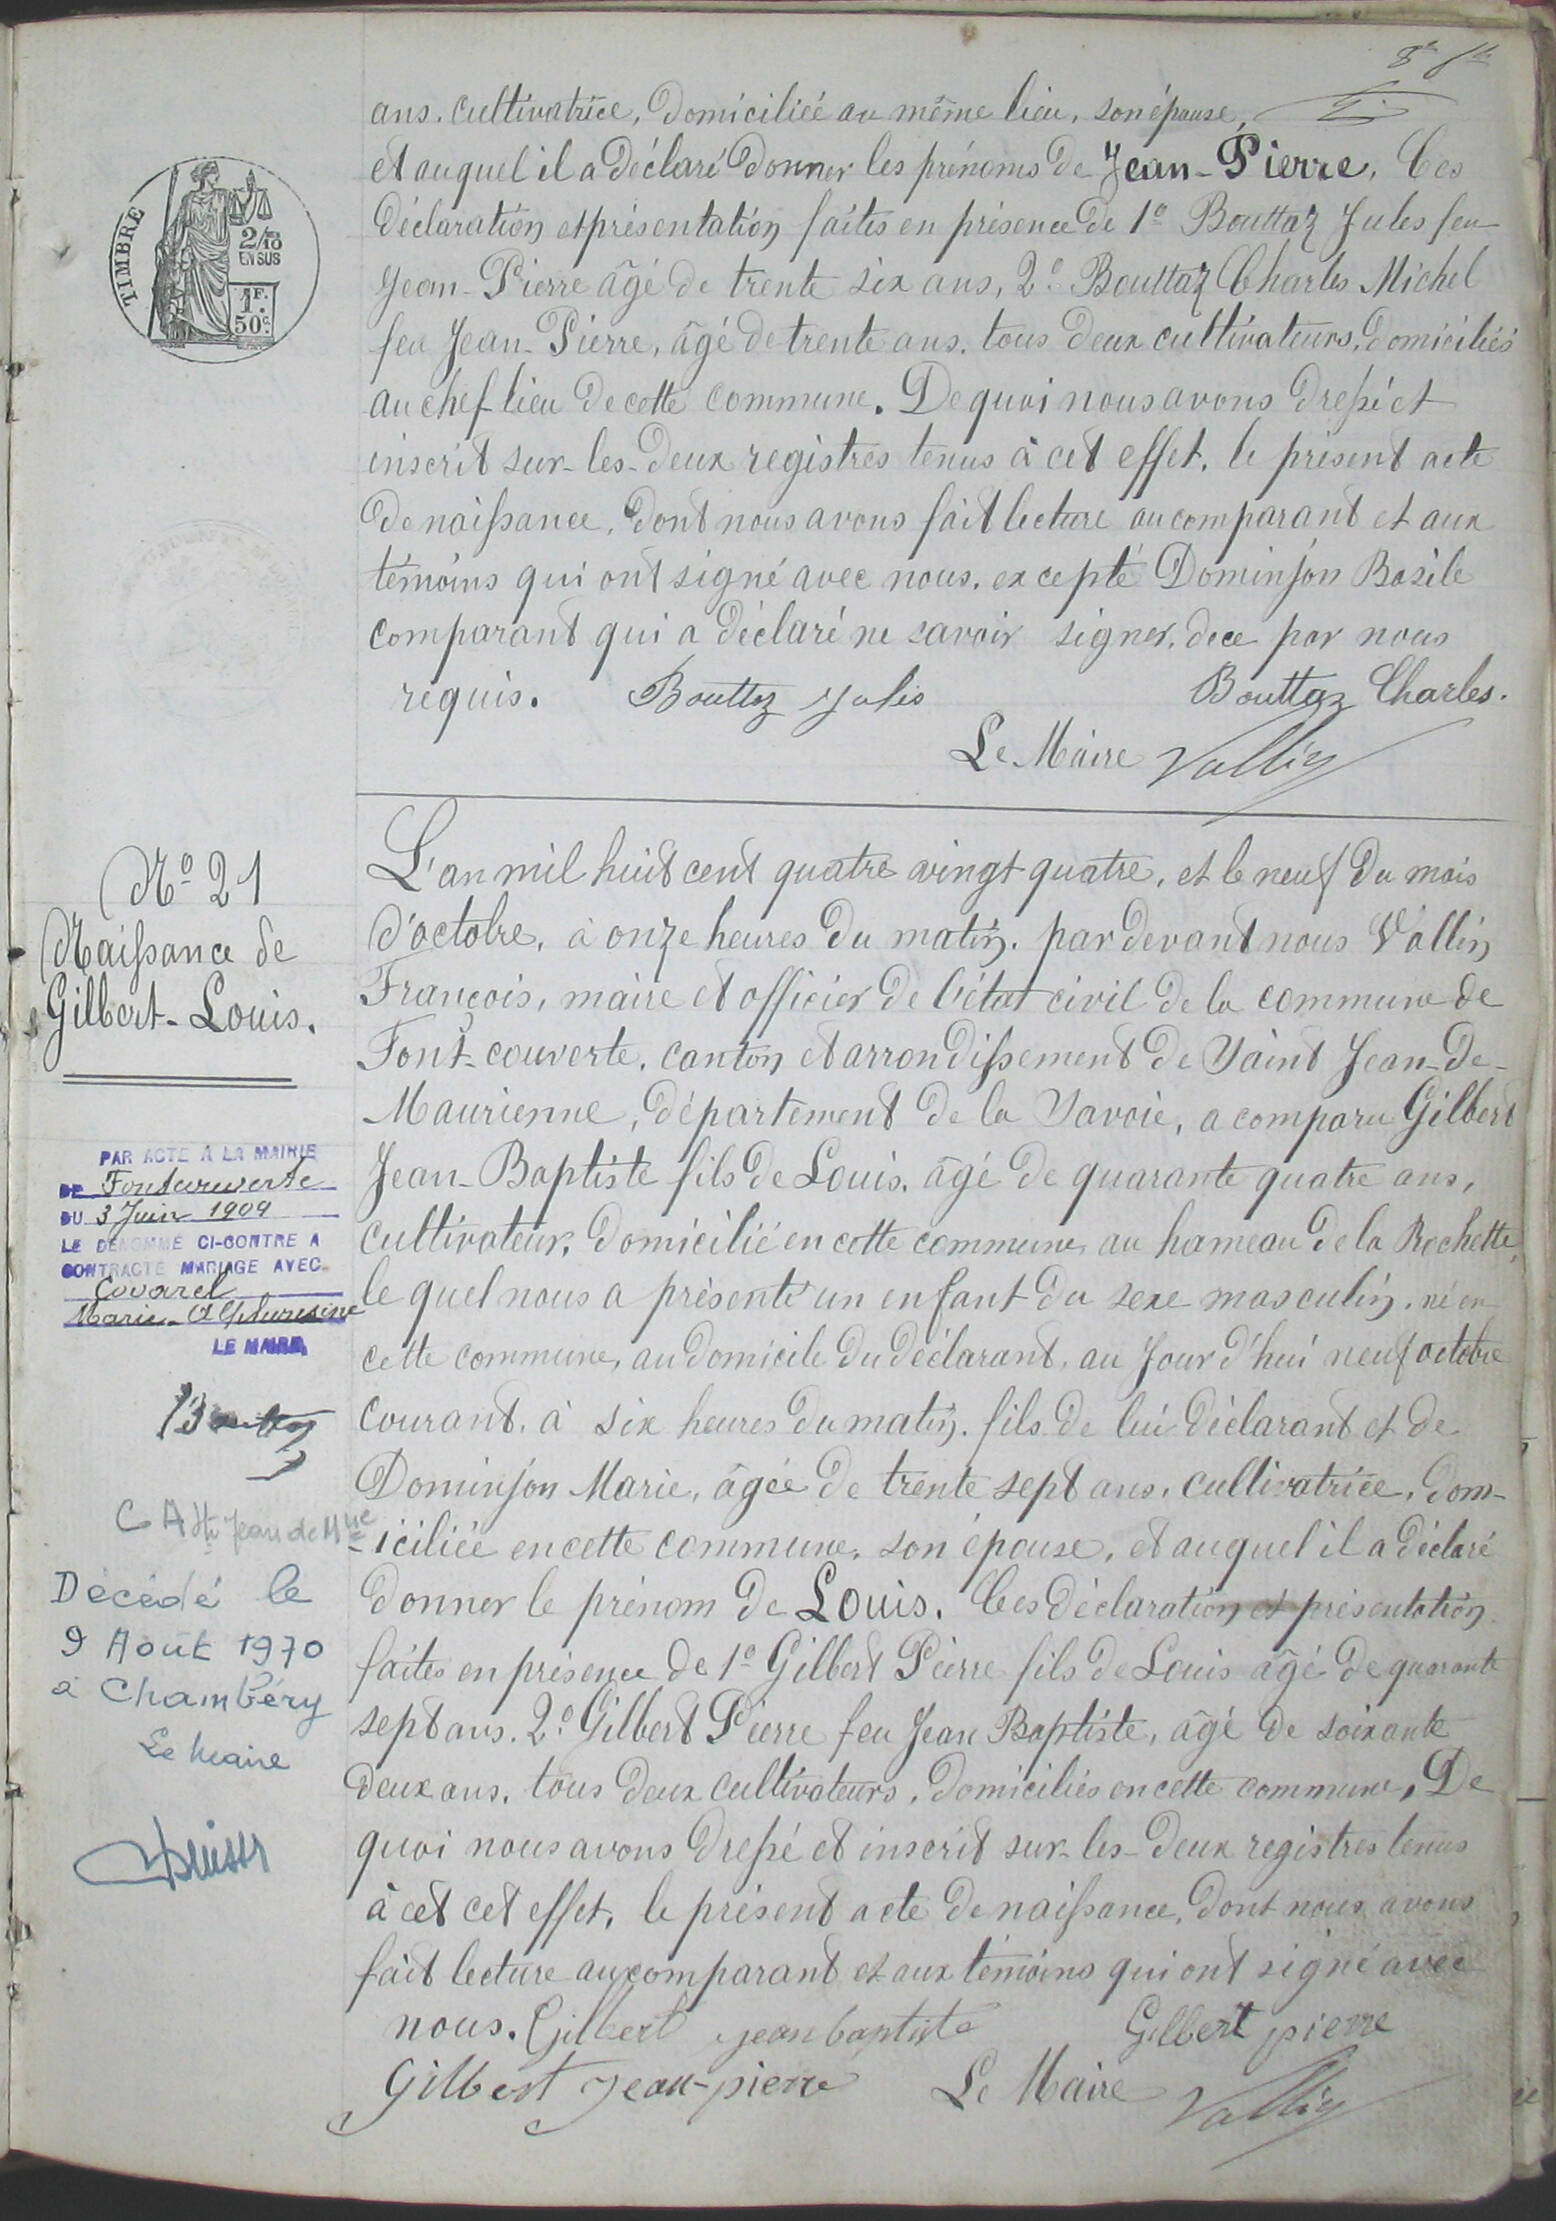 8e
ans. cultivatrice, domiciliée au même lieu, son épouse,
et auquel il a déclaré donner les prénoms de Jean-Pierre. Ces
déclaration et présentation faites en présence de 1º Bouttaz Jules feu
Jean-Pierre âgé de trente six ans, 2º Bouttaz Charles Michel
feu Jean-Pierre, âgé de trente ans, tous deux cultivateurs, domiciliés
au chef lieu de cette commune. De quoi nous avons dressé et
inscrit sur-les-deux registres tenus à cet effet, le présent acte
de naissance, dont nous avons fait lecture au comparant et aux
témoins qui ont signé avec nous, excepté Dominjon Basile
comparant qui a déclaré ne savoir signer, de ce par nous
requis. Bouttaz Jules Bouttaz Charles.
Le Maire Vallin
TIMBRE
2/10
EN SUS
1F.
50c.
Nº 21
Naissance de
Gilbert-Louis.
L'an mil huit cent quatre vingt quatre, et le neuf du mois
d'octobre, à onze heures du matin, par devant nous Vallin
François, maire et officier de l'état civil de la commune de
Font-couverte, canton et arrondissement de Saint Jean-de-
Maurienne, département de la Savoie, a comparu Gilbert
Jean-Baptiste fils de Louis, âgé de quarante quatre ans,
cultivateur, domicilié en cette commune, au hameau de la Rochette,
le quel nous a présenté un enfant du sexe masculin, né en
cette commune, au domicile du déclarant, au jour d'hui neuf octobre
courant, à six heures du matin, fils de lui déclarant et de
Dominjon Marie, âgée de trente sept ans, cultivatrice, dom-
iciliée en cette commune, son épouse, et auquel il a déclaré
donner le prénom de Louis. Ces déclaration et présentation
faites en présence de 1º Gilbert Pierre fils de Louis âgé de quarante
sept ans, 2º Gilbert Pierre feu Jean Baptiste, âgé de soixante
deux ans, tous deux cultivateurs, domiciliés en cette commune, De
quoi nous avons dressé et inscrit sur-les-deux registres tenus
à cet cet effet, le présent acte de naissance, dont nous avons
fait lecture au comparant et aux témoins qui ont signé avec
nous. Gilbert jean baptiste Gilbert pierre
Gilbert Jean-pierre Le Maire Vallin
PAR ACTE A LA MAIRIE
DE Fontcouverte
DU 3 Juin 1909
LE DÉNOMMÉ CI-CONTRE A
CONTRACTÉ MARIAGE AVEC
Covarel
Marie-Alphonsine
LE MAIRE,
Bouttaz
C A St Jean de Mne
Décédé le
9 Août 1970
à Chambéry
Le Maire